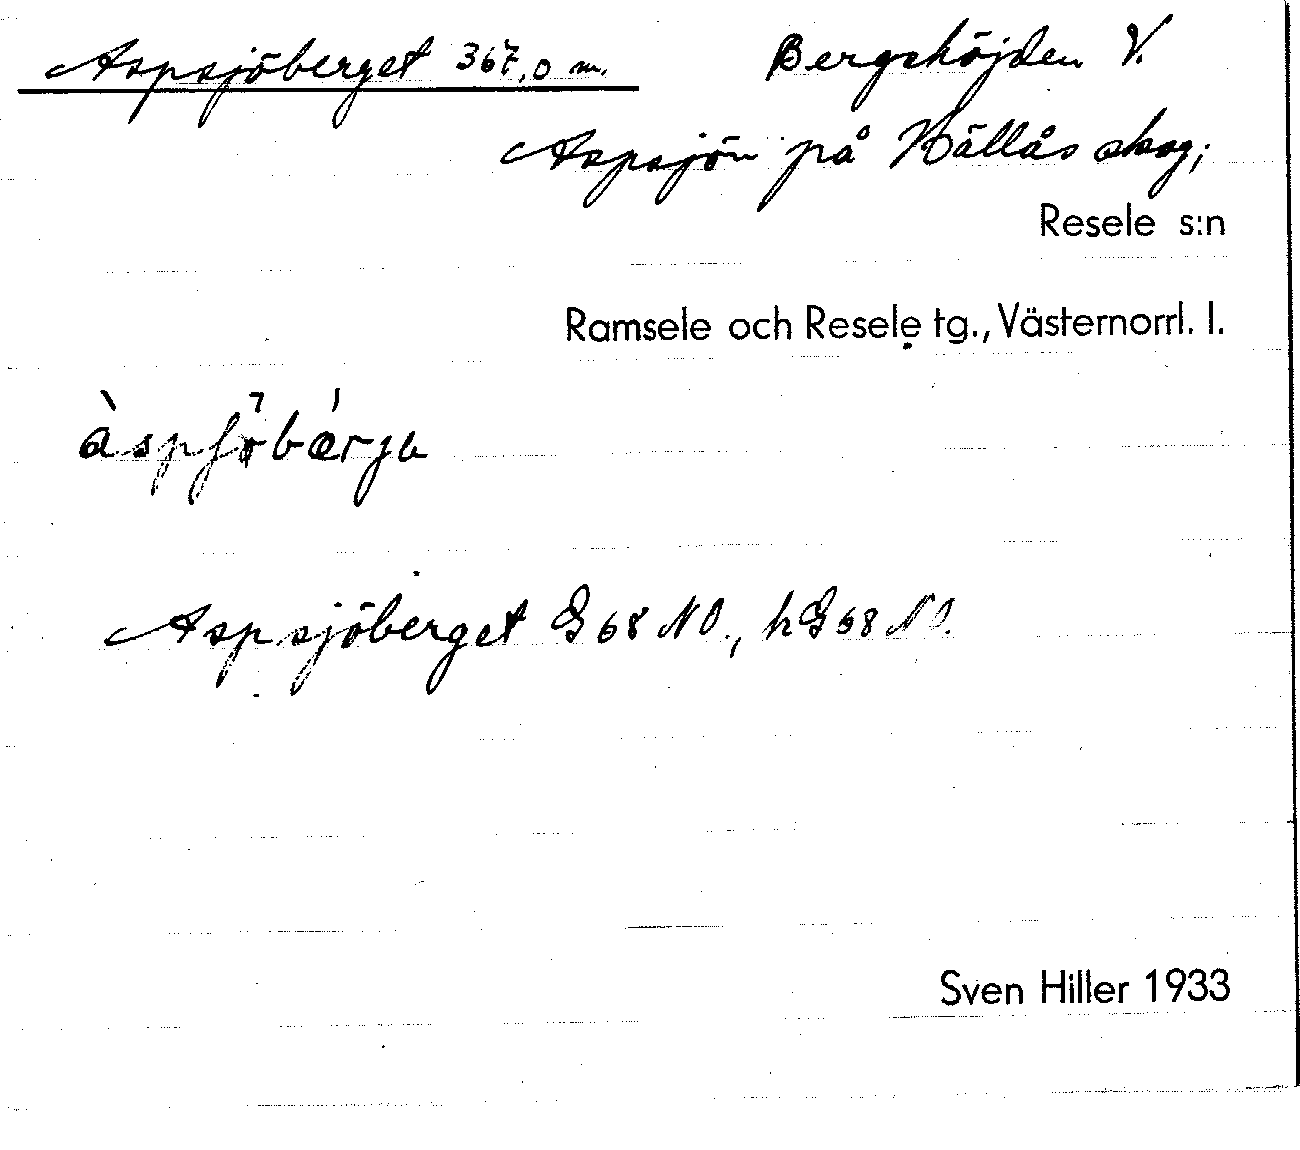 Aspsjöberget 367,0 m. Bergshöjden V.
Aspsjön på Källås skog;
Resele s:n
Ramsele och Resele tg., Västernorrl. l.
Aspsjöberget G 68 NO., h G 68 NO.
Sven Hiller 1933